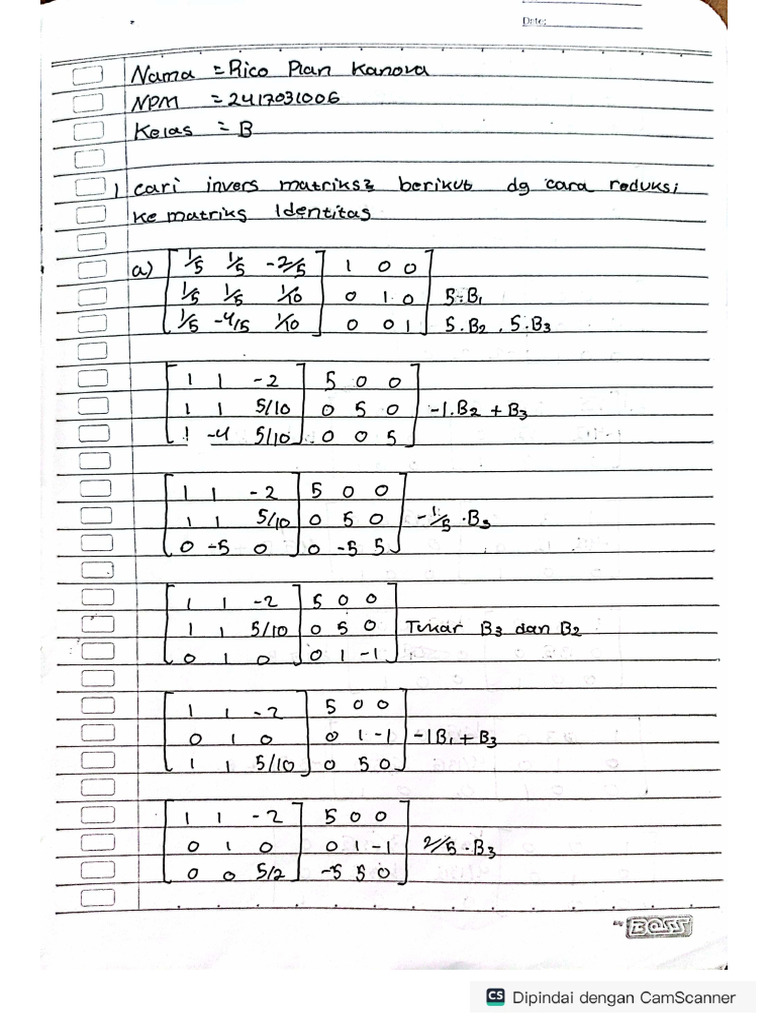 Date:
Nama = Rico Pian Kanova
NPM = 2417031006
Kelas = B
1 cari invers matriks2 berikut dg cara reduksi
ke matriks Identitas
a) 1/5 1/5 -2/5 1 0 0
1/5 1/5 1/10 0 1 0 5.B1
1/5 -4/5 1/10 0 0 1 5.B2 , 5.B3
1 1 -2 5 0 0
1 1 5/10 0 5 0 -1.B2 + B3
1 -4 5/10 0 0 5
1 1 -2 5 0 0
1 1 5/10 0 5 0 -1/5 .B3
0 -5 0 0 -5 5
1 1 -2 5 0 0
1 1 5/10 0 5 0 Tukar B3 dan B2
0 1 0 0 1 -1
1 1 -2 5 0 0
0 1 0 0 1 -1 -1B1 + B3
1 1 5/10 0 5 0
1 1 -2 5 0 0
0 1 0 0 1 -1 2/5 . B3
0 0 5/2 -5 5 0
by BOSS
CS Dipindai dengan CamScanner